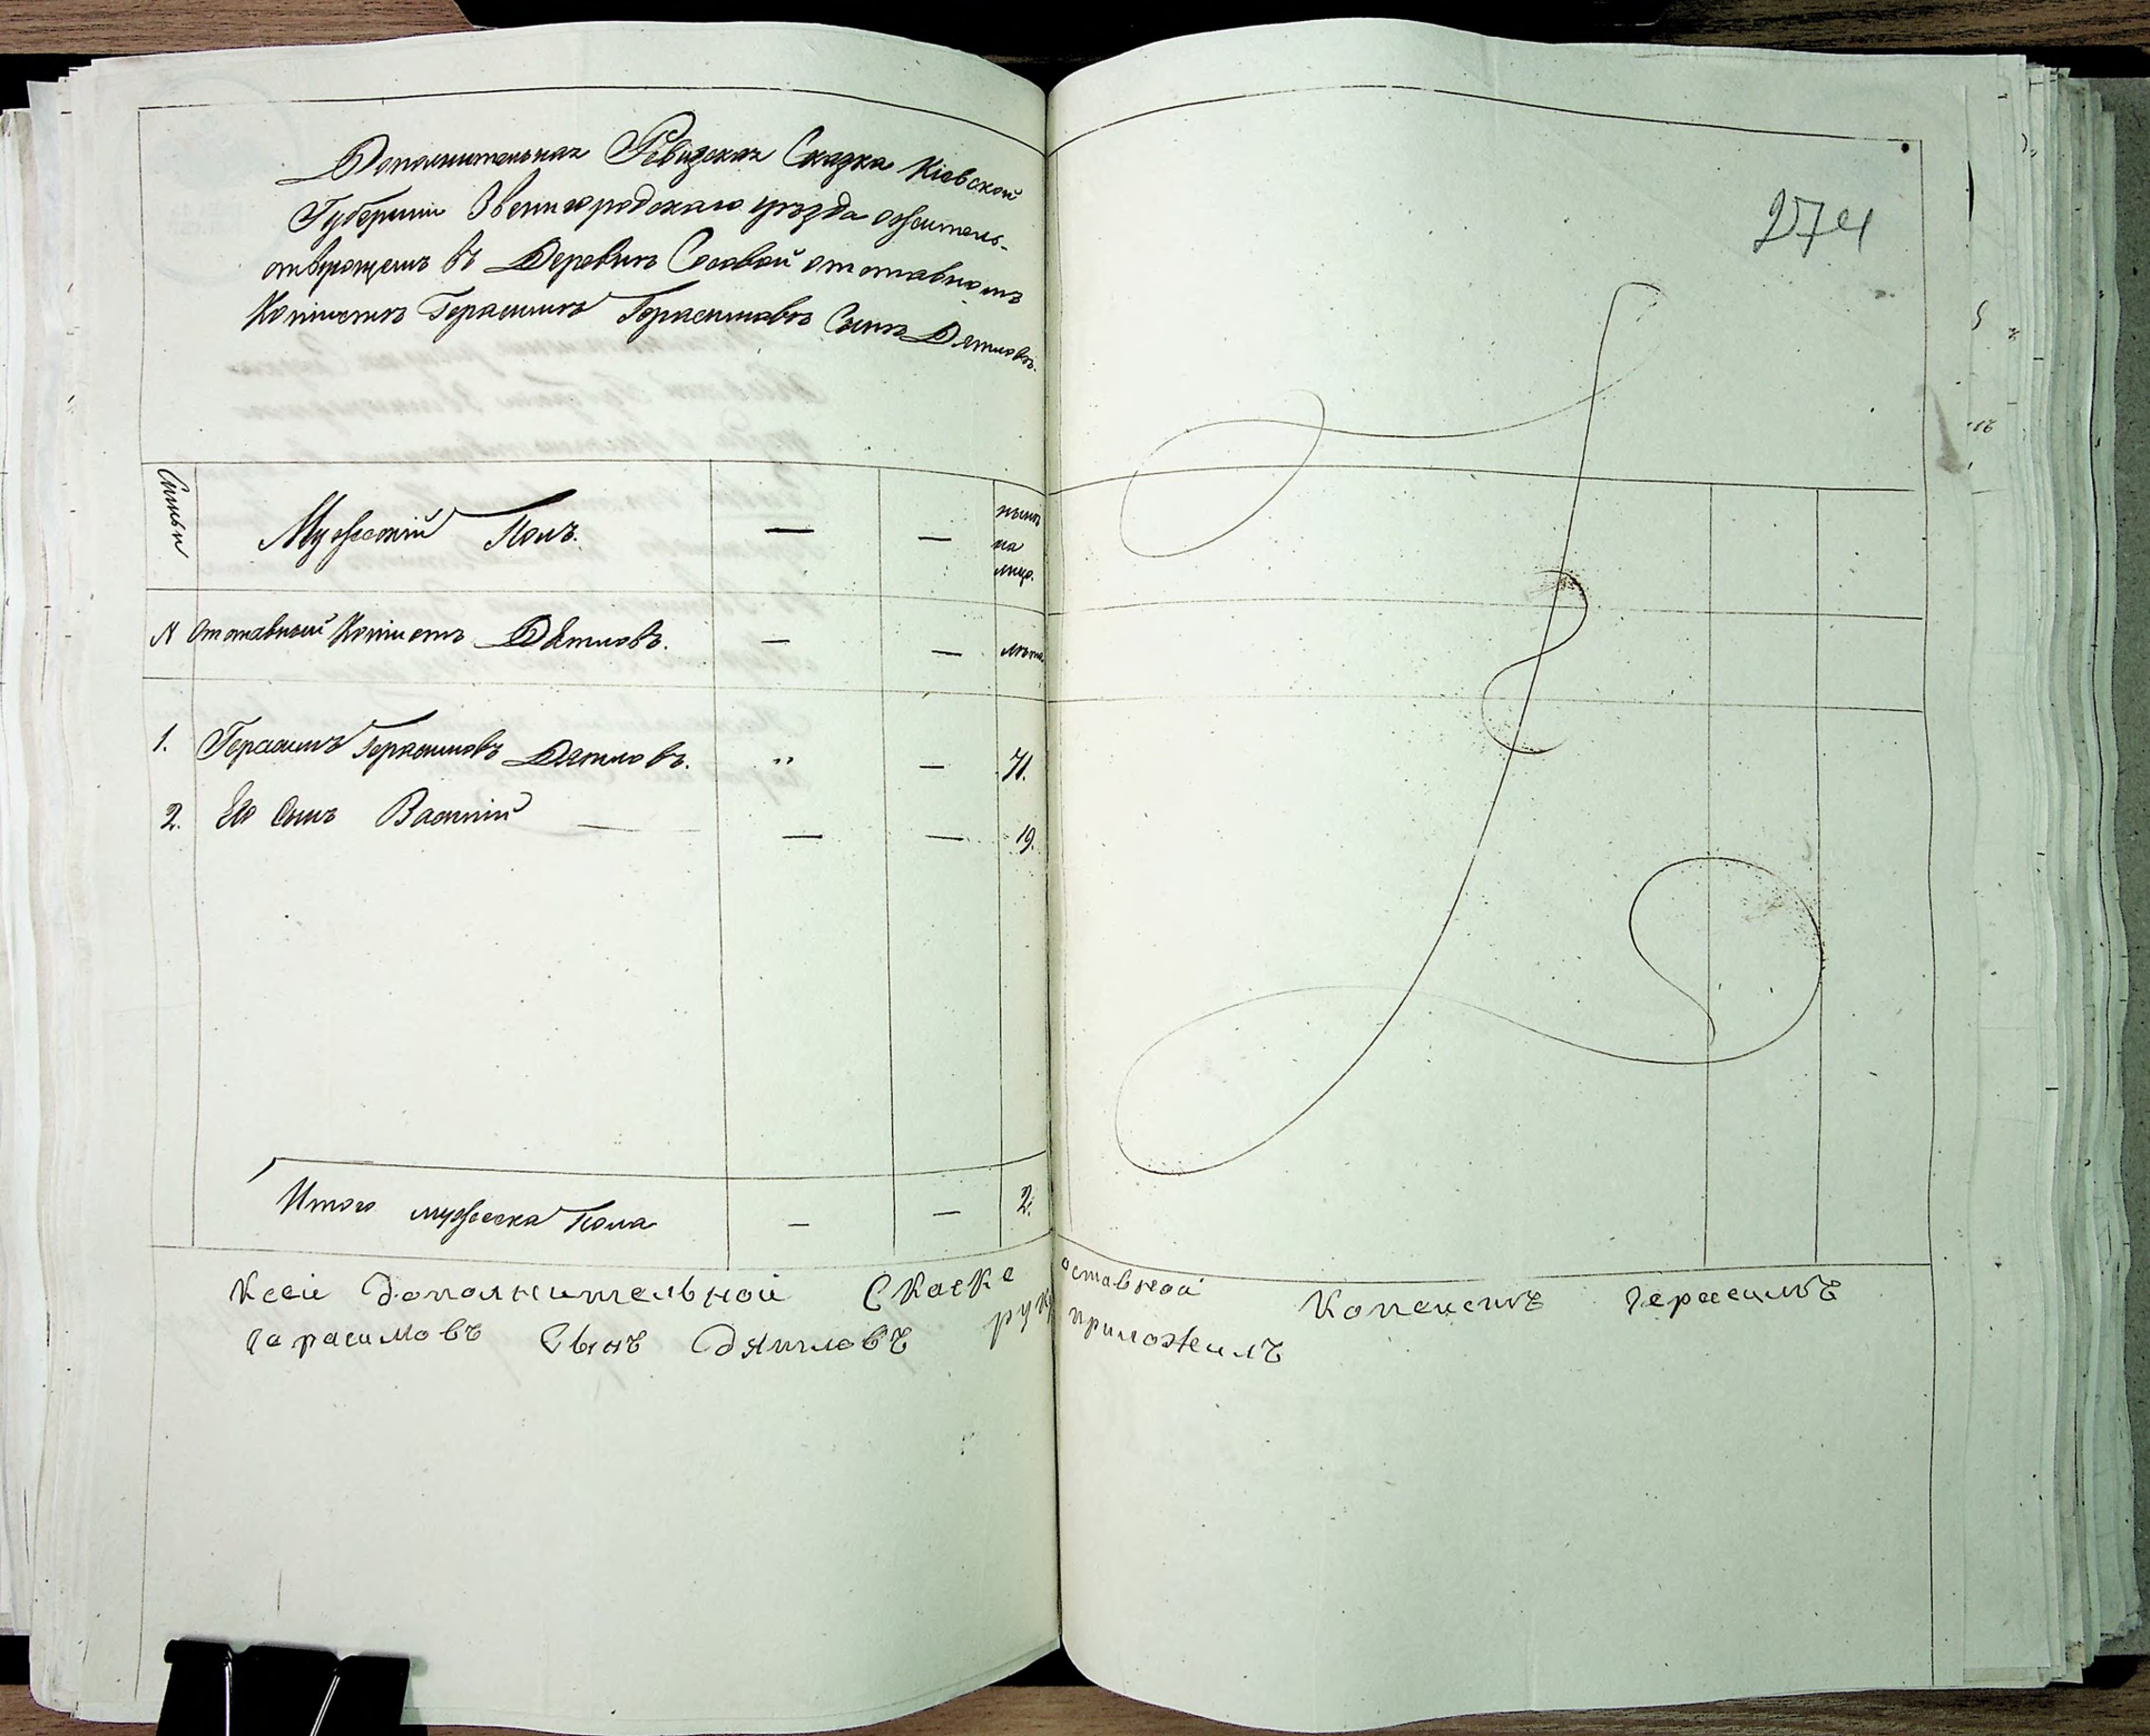 Дополнительная Ревизская Сказка Кіевской
Губерніи Звенигородскаго уезда о жительствующемъ
въ Деревни Соловой отставномъ
Копіистъ Герасимъ Герасимовъ Сынъ Дятловъ.
274
Семьи
Мужескій Полъ.
—
—
нынѣ
на
лицо.
N Отставный Копіистъ Дятловъ.
—
—
лѣта
1. Герасимъ Герасимовъ Дятловъ.
„
—
71.
2. Его Сынъ Василій
—
—
19.
Итого мужеска Пола
—
—
2.
Ксеи дополнительной Скаске оставной Копеистъ Герасимъ
Герасимовъ Сынъ Дятловъ руку приложилъ